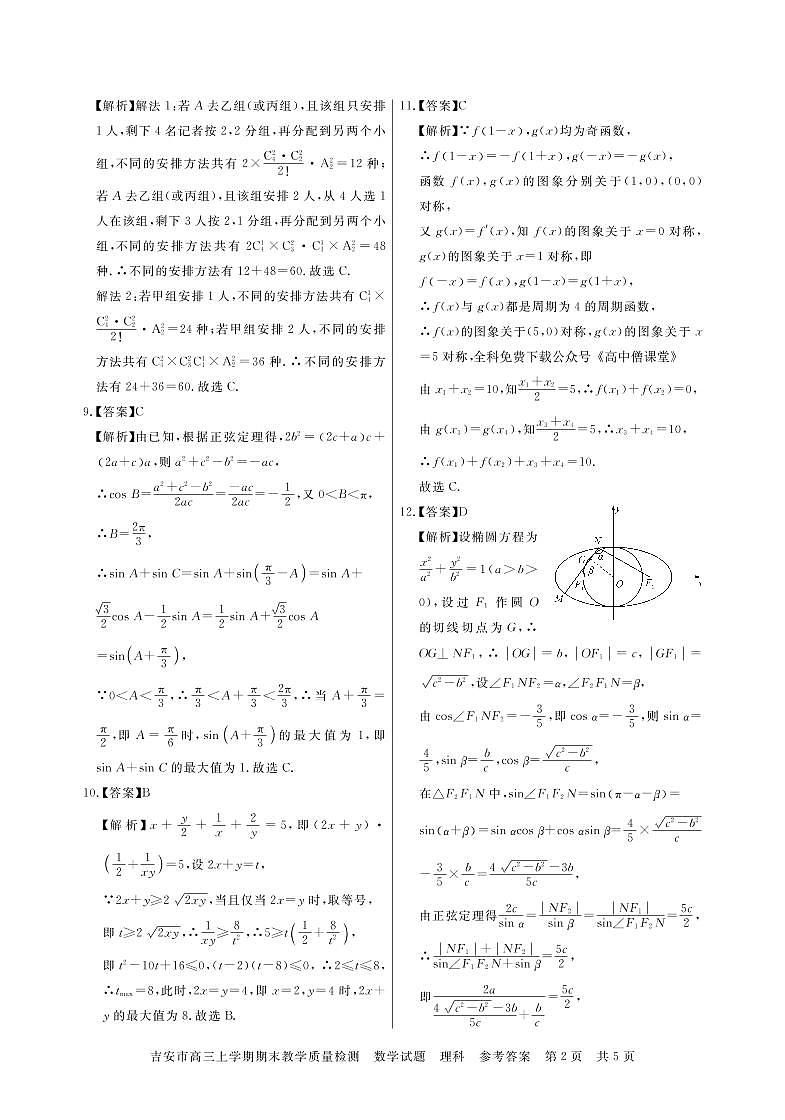 【解析】解法1:若A去乙组(或丙组),且该组只安排
1人,剩下4名记者按2,2分组,再分配到另两个小
组,不同的安排方法共有 2×\frac{C_4^2·C_2^2}{2!}·A_2^2=12种;
若A去乙组(或丙组),且该组安排2人,从4人选1
人在该组,剩下3人按2,1分组,再分配到另两个小
组,不同的安排方法共有 2C_4^1×C_3^2·C_1^1×A_2^2=48
种.∴不同的安排方法有12+48=60.故选C.
解法2:若甲组安排1人,不同的安排方法共有C_4^1×
\frac{C_4^2·C_2^2}{2!}·A_2^2=24种;若甲组安排2人,不同的安排
方法共有C_4^1×C_3^2C_1^1×A_2^2=36种.∴不同的安排方
法有24+36=60.故选C.
9.【答案】C
【解析】由已知,根据正弦定理得,2b²=(2c+a)c+
(2a+c)a,则a²+c²-b²=-ac,
∴cos B=\frac{a²+c²-b²}{2ac}=\frac{-ac}{2ac}=-\frac{1}{2},又0<B<π,
∴B=\frac{2π}{3},
∴sin A+sin C=sin A+sin(\frac{π}{3}-A)=sin A+
\frac{\sqrt{3}}{2}cos A-\frac{1}{2}sin A=\frac{1}{2}sin A+\frac{\sqrt{3}}{2}cos A
=sin(A+\frac{π}{3}),
∵0<A<\frac{π}{3},∴\frac{π}{3}<A+\frac{π}{3}<\frac{2π}{3},∴当A+\frac{π}{3}=
\frac{π}{2},即A=\frac{π}{6}时,sin(A+\frac{π}{3})的最大值为1,即
sin A+sin C的最大值为1.故选C.
10.【答案】B
【解析】x+\frac{y}{2}+\frac{1}{x}+\frac{2}{y}=5,即(2x+y)·
(\frac{1}{2}+\frac{1}{xy})=5,设2x+y=t,
∵2x+y≥2\sqrt{2xy},当且仅当2x=y时,取等号,
即t≥2\sqrt{2xy},∴\frac{1}{xy}≥\frac{8}{t²},∴5≥t(\frac{1}{2}+\frac{8}{t²}),
即t²-10t+16≤0,(t-2)(t-8)≤0,∴2≤t≤8,
∴t_{max}=8,此时,2x=y=4,即x=2,y=4时,2x+
y的最大值为8.故选B.
11.【答案】C
【解析】∵f(1-x),g(x)均为奇函数,
∴f(1-x)=-f(1+x),g(-x)=-g(x),
函数f(x),g(x)的图象分别关于(1,0),(0,0)
对称,
又g(x)=f′(x),知f(x)的图象关于x=0对称,
g(x)的图象关于x=1对称,即
f(-x)=f(x),g(1-x)=g(1+x),
∴f(x)与g(x)都是周期为4的周期函数,
∴f(x)的图象关于(5,0)对称,g(x)的图象关于x
=5对称,全科免费下载公众号《高中僧课堂》
由x_1+x_2=10,知\frac{x_1+x_2}{2}=5,∴f(x_1)+f(x_2)=0,
由g(x_3)=g(x_4),知\frac{x_3+x_4}{2}=5,∴x_3+x_4=10,
∴f(x_1)+f(x_2)+x_3+x_4=10.
故选C.
12.【答案】D
【解析】设椭圆方程为
\frac{x²}{a²}+\frac{y²}{b²}=1(a>b>
0),设过F_1作圆O
的切线切点为G,∴
N
α
G
β
F_1
O
F_2
M
OG⊥NF_1,∴|OG|=b,|OF_1|=c,|GF_1|=
\sqrt{c²-b²},设∠F_1NF_2=α,∠F_2F_1N=β,
由cos∠F_1NF_2=-\frac{3}{5},即cos α=-\frac{3}{5},则sin α=
\frac{4}{5},sin β=\frac{b}{c},cos β=\frac{\sqrt{c²-b²}}{c},
在△F_2F_1N中,sin∠F_1F_2N=sin(π-α-β)=
sin(α+β)=sin αcos β+cos αsin β=\frac{4}{5}×\frac{\sqrt{c²-b²}}{c}
-\frac{3}{5}×\frac{b}{c}=\frac{4\sqrt{c²-b²}-3b}{5c},
由正弦定理得\frac{2c}{sin α}=\frac{|NF_2|}{sin β}=\frac{|NF_1|}{sin∠F_1F_2N}=\frac{5c}{2},
∴\frac{|NF_1|+|NF_2|}{sin∠F_1F_2N+sin β}=\frac{5c}{2},
即\frac{2a}{\frac{4\sqrt{c²-b²}-3b}{5c}+\frac{b}{c}}=\frac{5c}{2},
吉安市高三上学期期末教学质量检测 数学试题 理科 参考答案 第2页 共5页